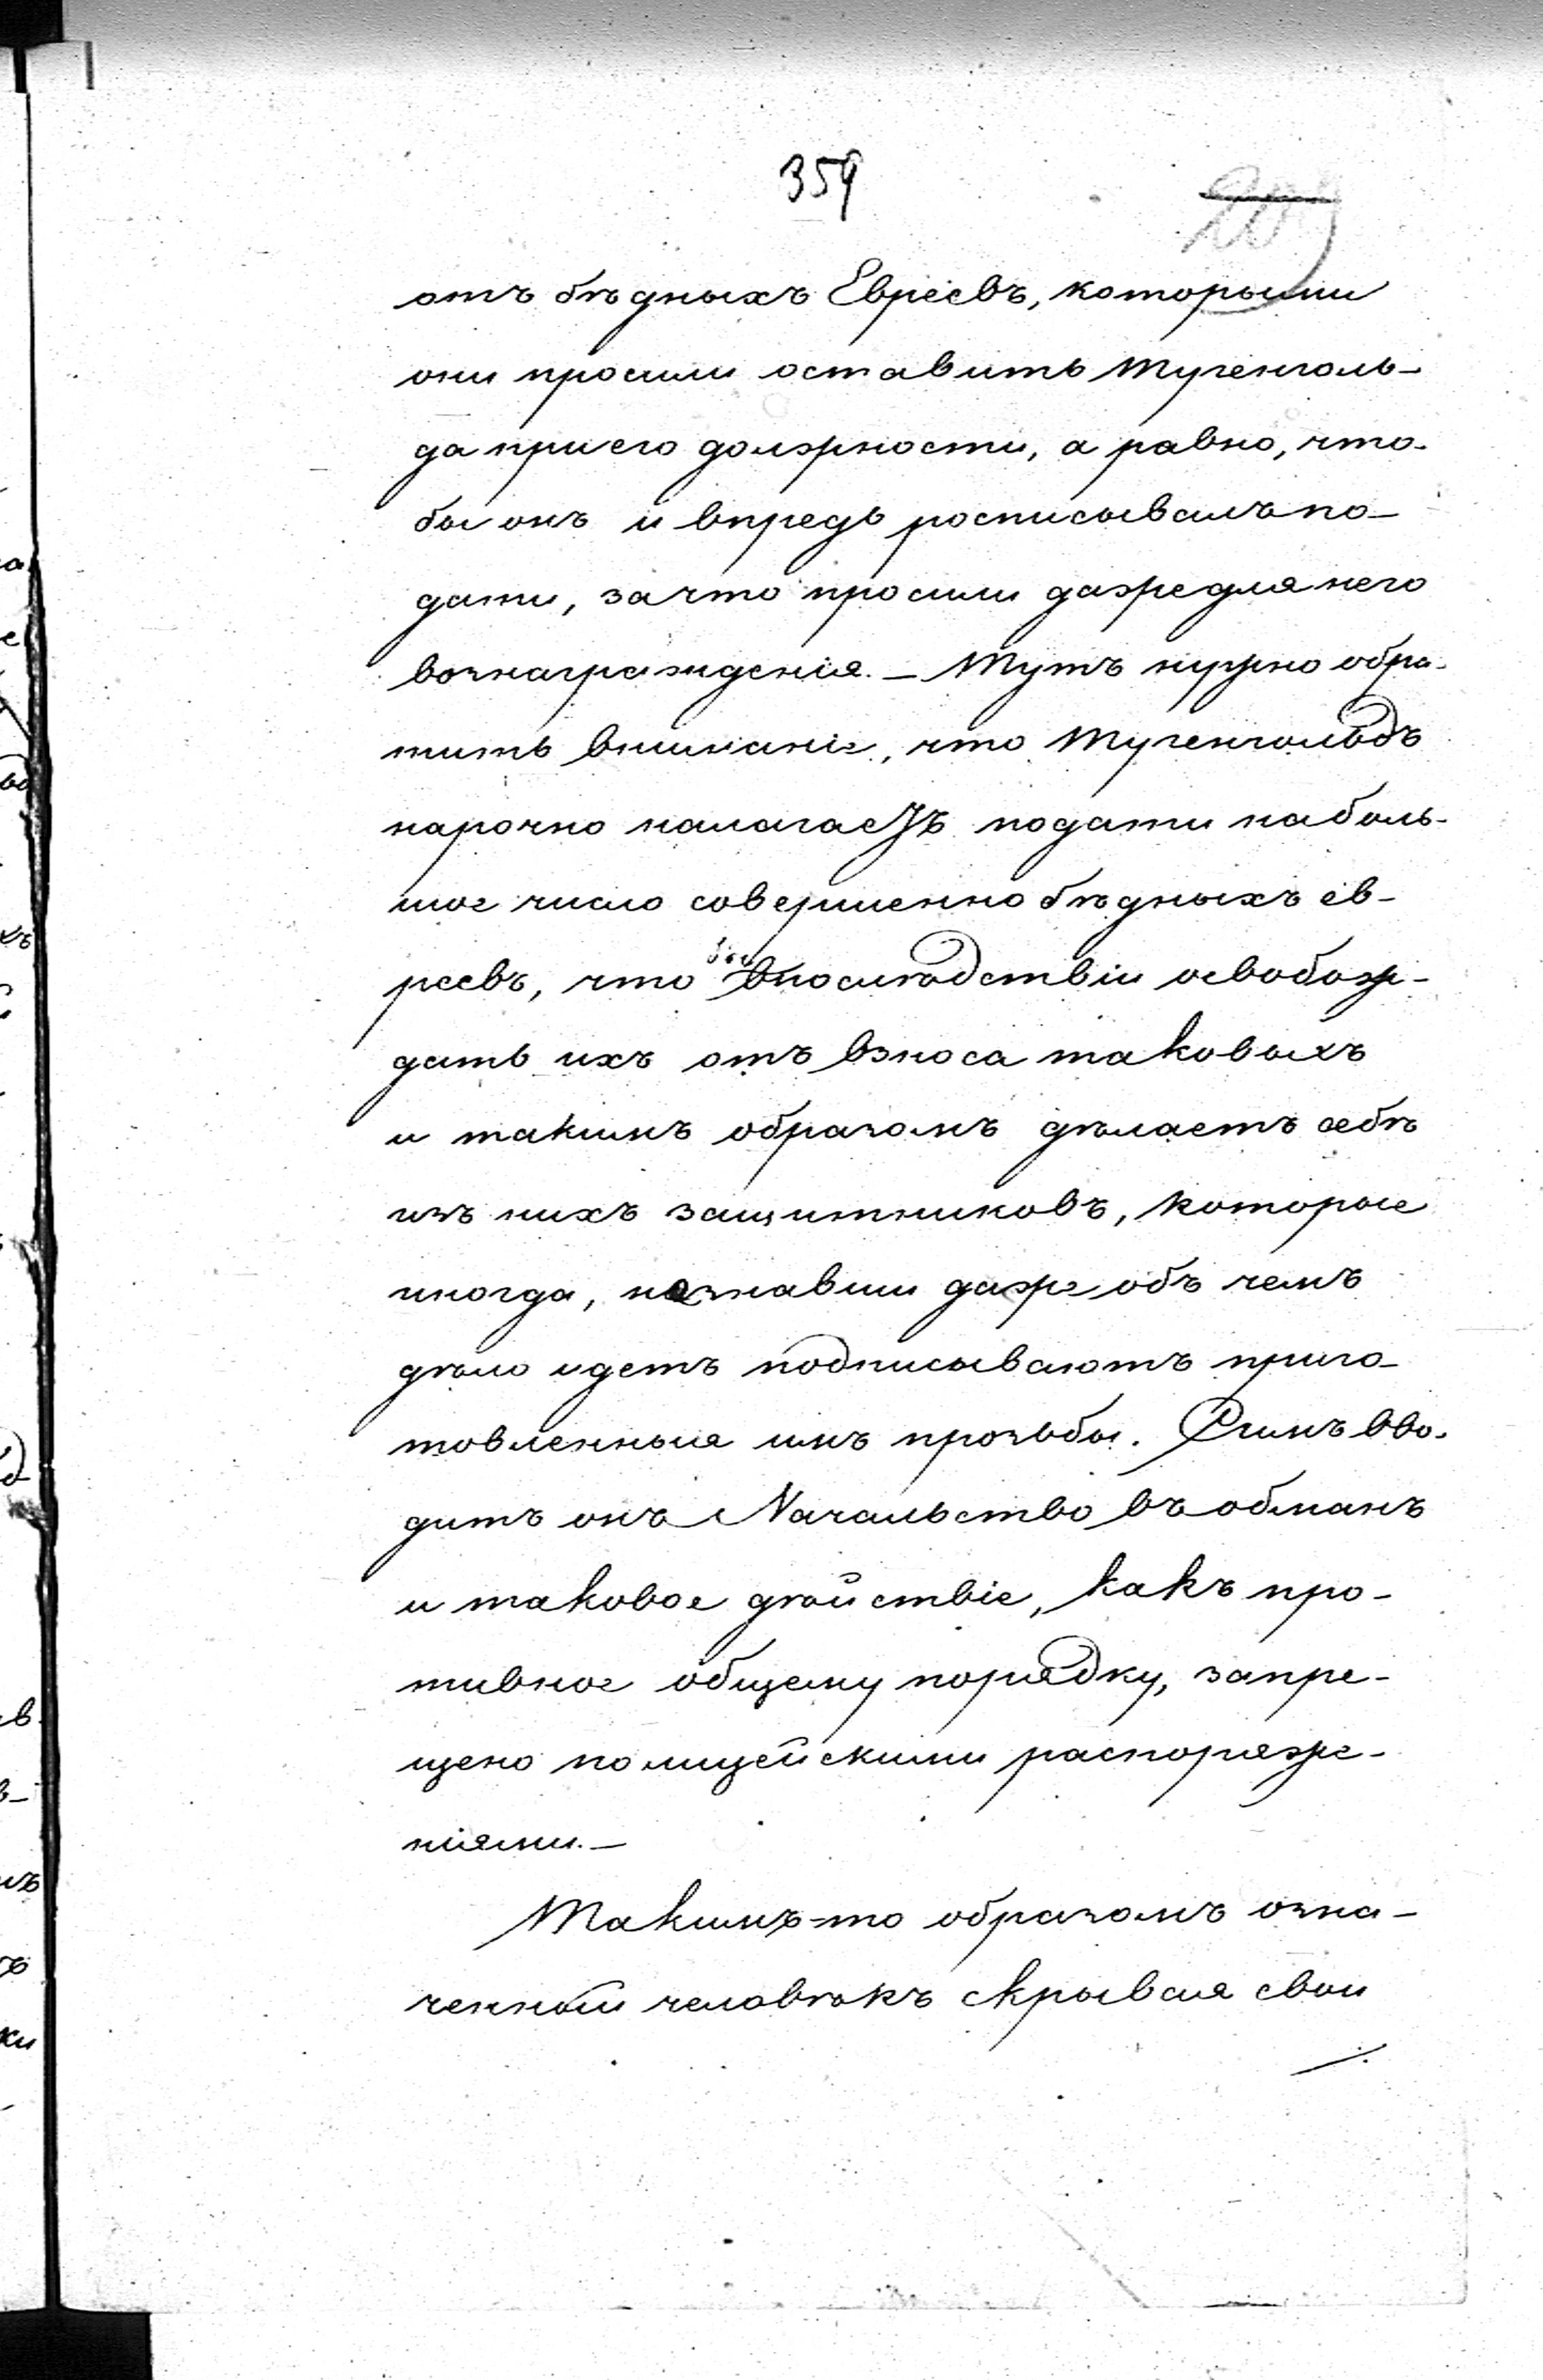 359
209
отъ бѣдныхъ Евреевъ, которыми
они просили оставить Тугенголь-
да при его должности, а равно, что-
бы онъ и впредь росписывалъ по-
дати, за что просили даже для него
вознагражденія. — Тутъ нужно обра-
тить вниманіе, что Тугенгольдъ
нарочно налагаетъ подати на боль-
шое число совершенно бѣдныхъ ев-
реевъ, что бы впослѣдствіи освобож-
дать ихъ отъ взноса таковыхъ
и такимъ образомъ дѣлаетъ себѣ
изъ нихъ защитниковъ, которые
иногда, незнавши даже объ чемъ
дѣло идетъ подписываютъ приго-
товленныя имъ прозьбы. Симъ вво-
дитъ онъ Начальство въ обманъ
и таковое дѣйствіе, какъ про-
тивное общему порядку, запре-
щено полицейскими распоряже-
ніями. —
Такимъ-то образомъ озна-
ченный человѣкъ скрывая свои